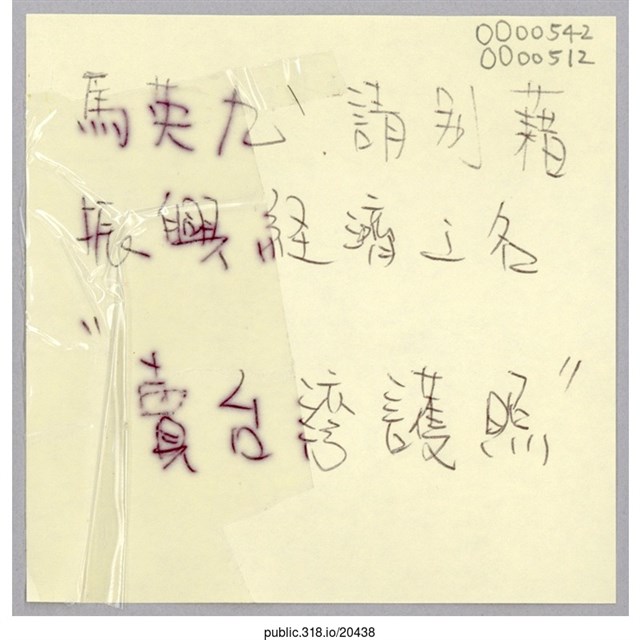 0000542
0000512
馬英九、請別藉
振興経濟之名
"賣台湾護照"
public.318.io/20438